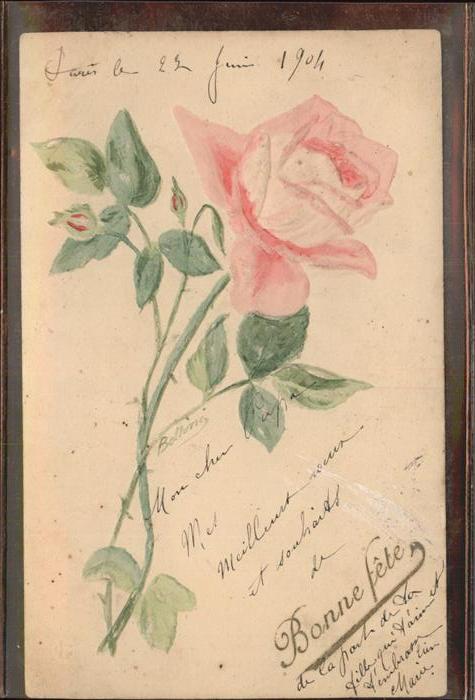 Paris le 22 Juin 1904
Bottoni
Mon cher Papa
Mes
Meilleurs vœux
et souhaits
de
Bonne fête
de la part de ta
fille qui t'aime et
t'embrasse
Marie